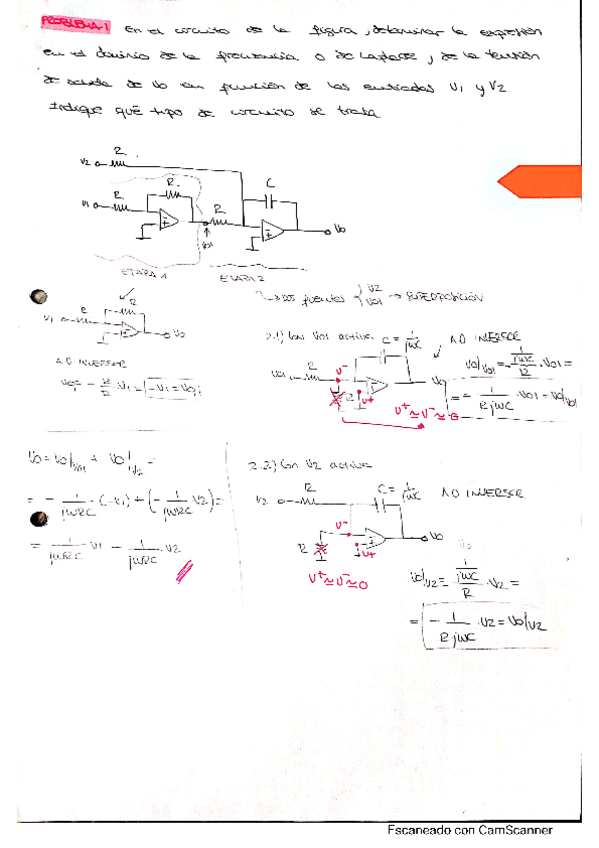 PROBLEMA 1 En el circuito de la figura, determinar la expresión
en el dominio de la frecuencia o de Laplace, de la tensión
de salida de Vo en función de las entradas V1 y V2
Indique qué tipo de circuito se trata
V2 R
V1 R R R C Vo
Vo1
ETAPA 1 ETAPA 2
↳ dos fuentes { V2 Vo1 → SUPERPOSICIÓN
V1 R R Vo
AO INVERSOR
2.1) Con Vo1 activa C = 1/jωC AO INVERSOR
Vo1 R V- V+ R Vo
V+ ≃ V- ≃ 0
Vo/Vo1 = - (1/jωC)/R · Vo1 =
= - 1/(R jωC) · Vo1 = Vo/Vo1
Vo = Vo/Vo1 + Vo/V2 =
= - 1/(jωRC) · (-V1) + (- 1/(jωRC) V2) =
= 1/(jωRC) · V1 - 1/(jωRC) · V2
2.2) Con V2 activa
V2 R C = 1/jωC AO INVERSOR
V- V+ R Vo
V+ ≃ V- ≃ 0
Vo/V2 = - (1/jωC)/R · V2 =
= - 1/(R jωC) · V2 = Vo/V2
Escaneado con CamScanner